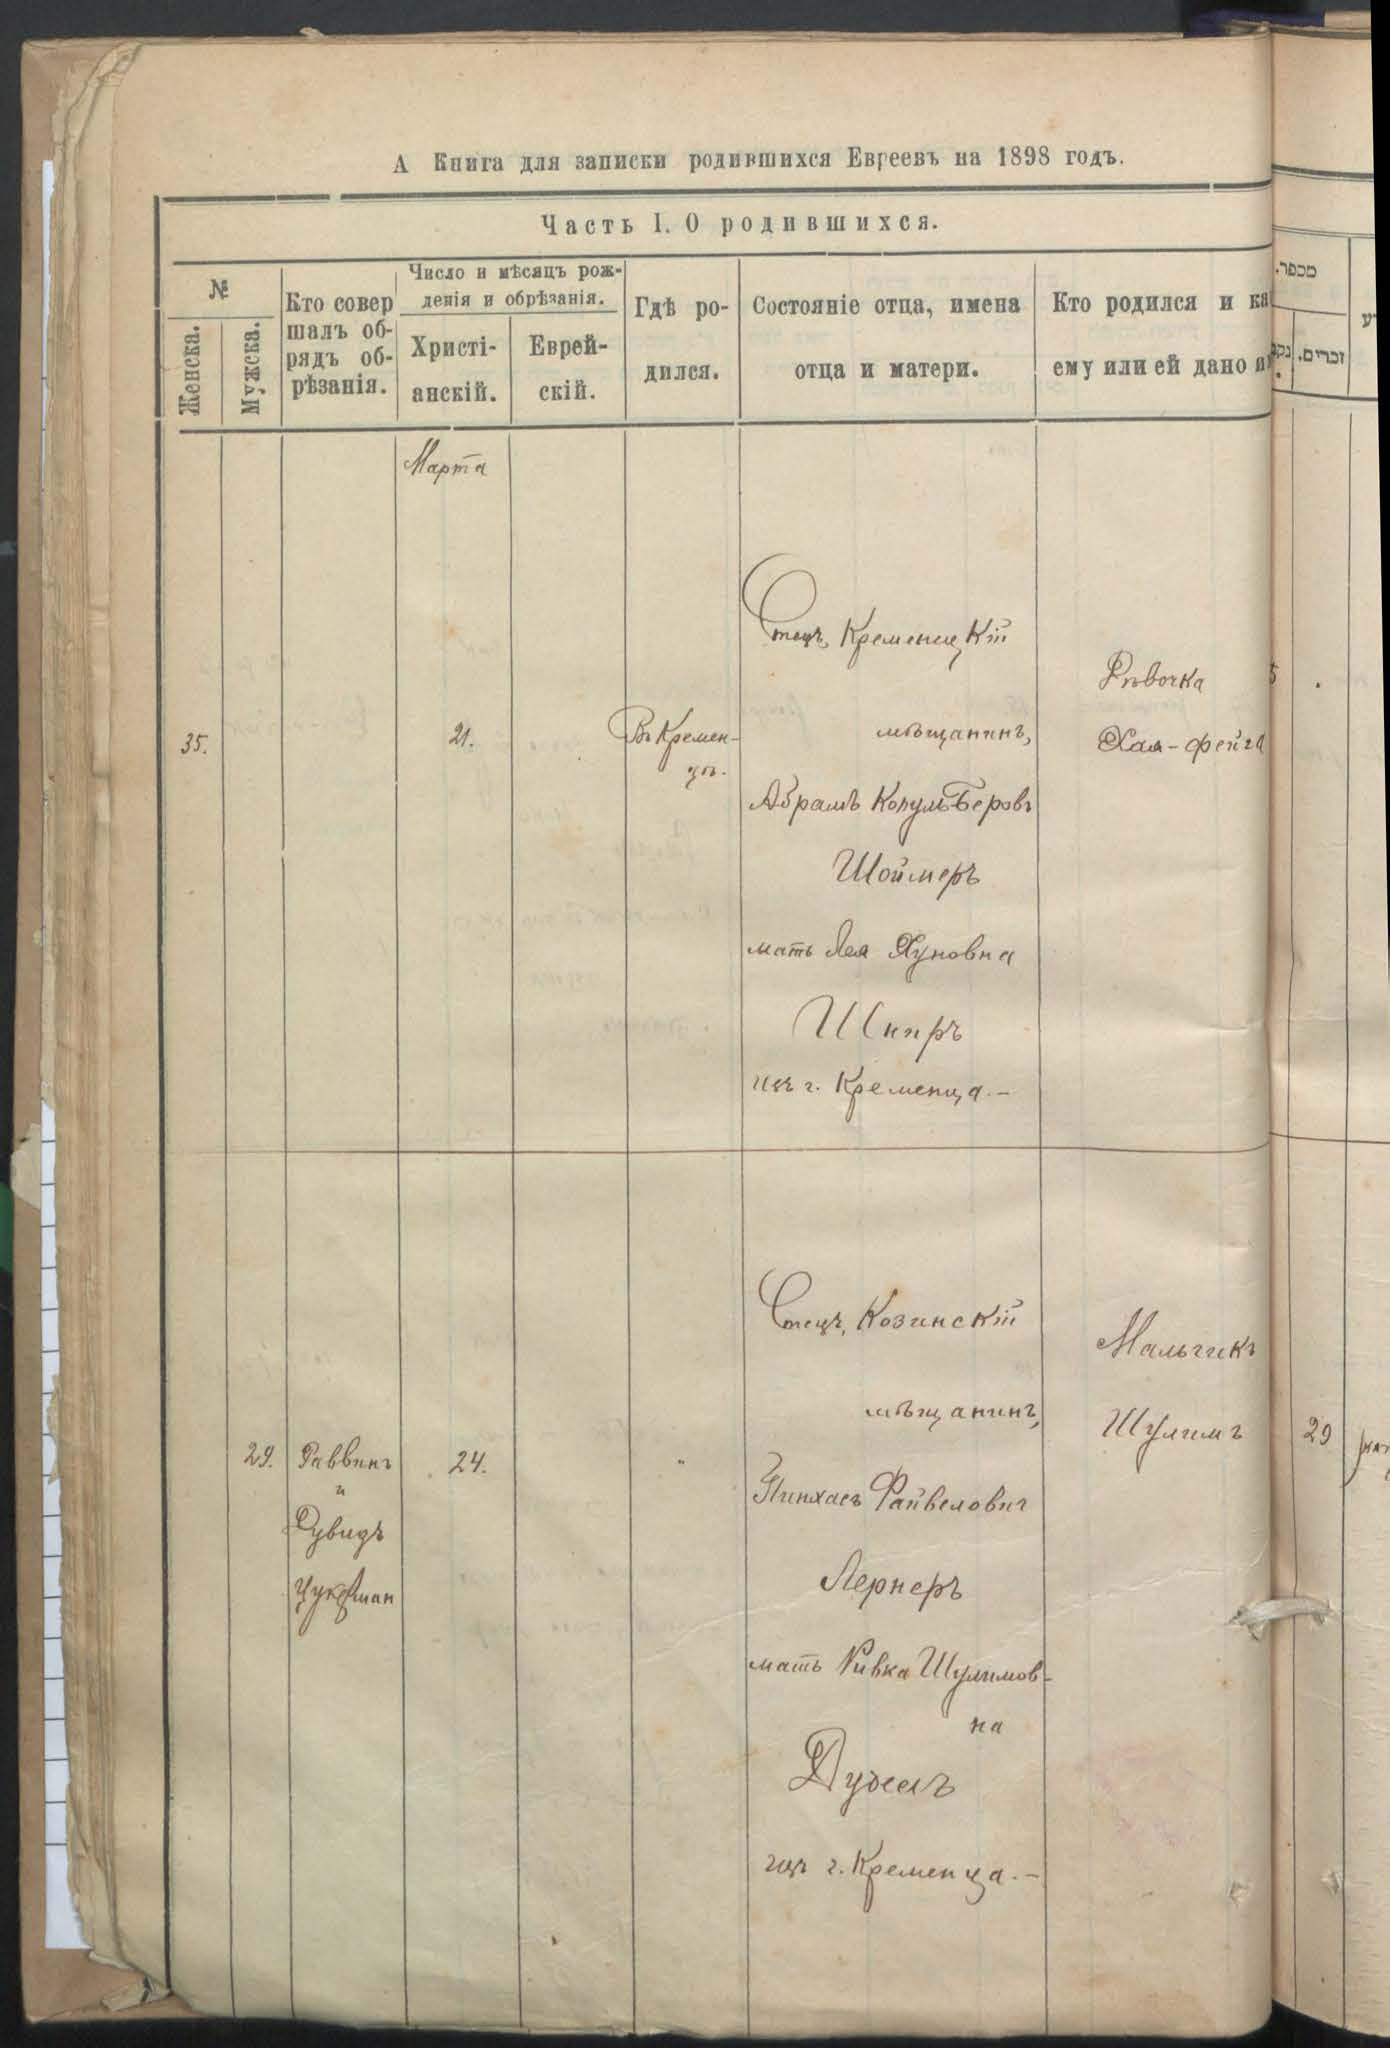 А Книга для записки родившихся Евреевъ на 1898 годъ.
Часть I. О родившихся.
№
Женска.
Мужска.
Кто совер
шалъ об-
рядъ об-
рѣзанія.
Число и мѣсяцъ рож-
денія и обрѣзанія.
Христі-
анскій.
Еврей-
скій.
Гдѣ ро-
дился.
Состояніе отца, имена
отца и матери.
Кто родился и ка
ему или ей дано и
מספר.
זכרים.
נקב
Марта
35.
21.
Въ Кремен-
цѣ.
Отецъ, Кременецкій
мѣщанинъ,
Абрамъ Копуль-Беровъ
Шоймеръ
мать Лея Хуновна
Шниръ
изъ г. Кременца.-
Дѣвочка
Хая-Фейга
5
29.
Раввинъ
и
Дувидъ
Цукерман
24.
"
Отецъ, Козинскій
мѣщанинъ,
Пинхасъ Файвелович
Лернеръ
мать Ривка Шулимов-
на
изъ г. Кременца.-
Мальчикъ
Шулимъ
29